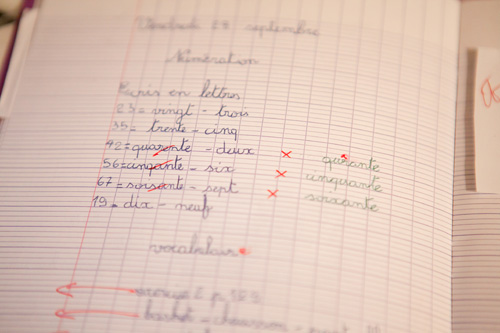 Vendredi 28 septembre
Numération
Ecris en lettres
23 = vingt - trois
35 = trente - cinq
42 = quarente - deux × quarante
56 = cinqante - six × cinquante
67 = soisante - sept × soixante
19 = dix - neuf
vocabulaire